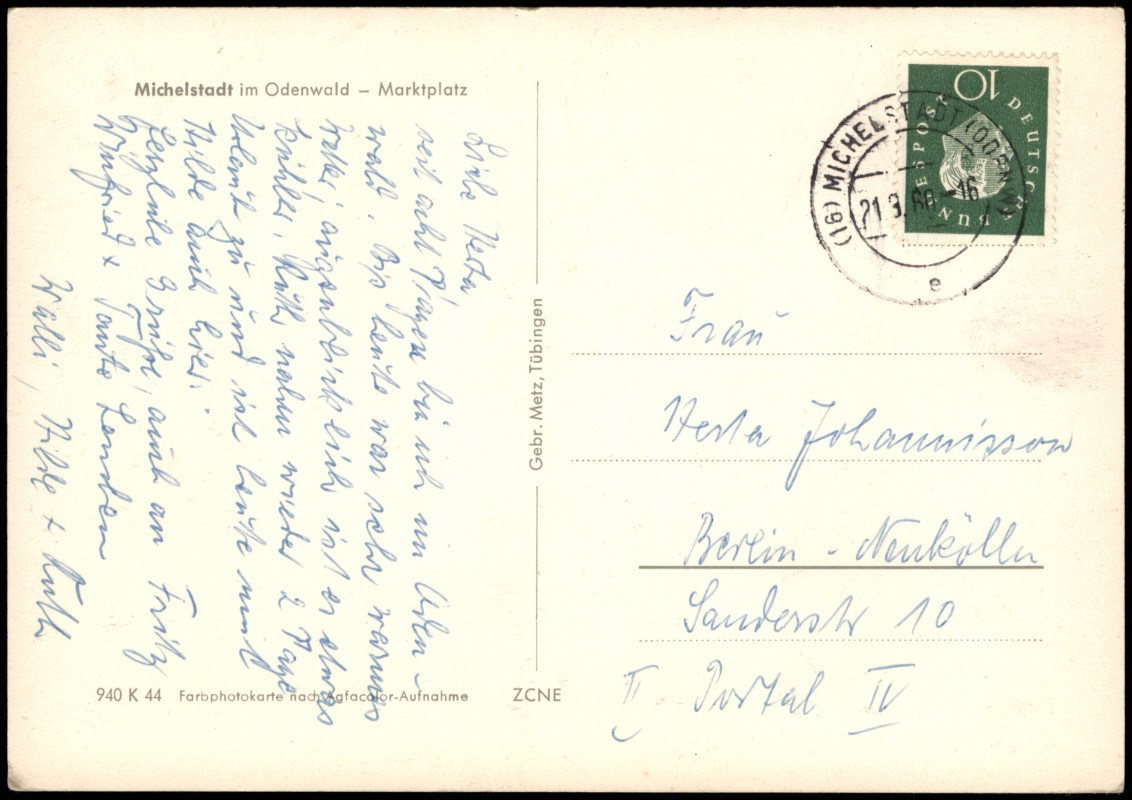 Michelstadt im Odenwald – Marktplatz
Liebe Herta
seit acht Tagen bin ich im Oden-
wald. Bis heute war sehr warmes
Wetter, augenblicklich ist es etwas
kühler. Ruth nahm wieder 2 Tage
Urlaub zu und ist heute mit
Hilde auch hier.
Herzliche Grüße, auch an Fritz
Winfried + Tante
Willi, Hilde + Ruth
940 K 44 Farbphotokarte nach Agfacolor-Aufnahme
ZCNE
Gebr. Metz, Tübingen
10
DEUTSCHE BUNDESPOST
(16) MICHELSTADT (ODENW)
21.9.60.-16
e
Frau
Herta Johannisson
Berlin - Neukölln
Sanderstr 10
II Portal IV